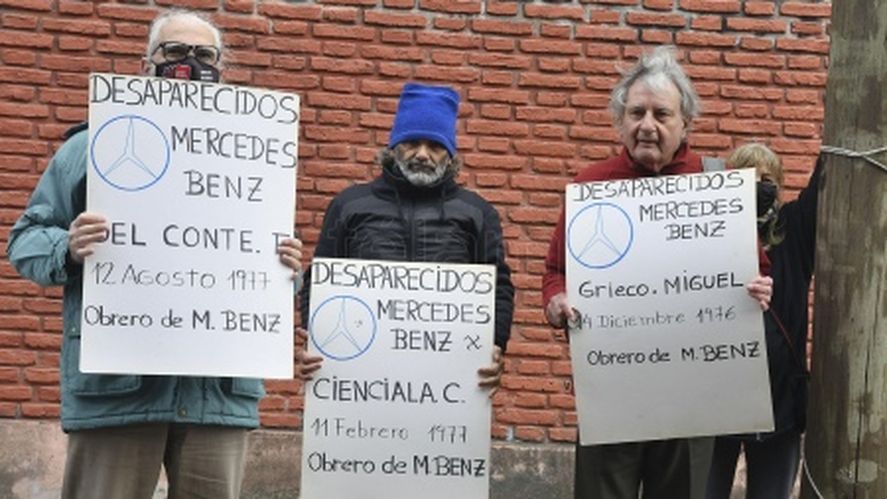 DESAPARECIDOS
MERCEDES
BENZ
DEL CONTE.
12 AGOSTO 1977
Obrero de M. BENZ
DESAPARECIDOS
MERCEDES
BENZ
CIENCIALA.C.
11 Febrero 1977
Obrero de M.BENZ
DESAPARECIDOS
MERCEDES
BENZ
Grieco. MIGUEL
14 Diciembre 1976
Obrero de M.BENZ